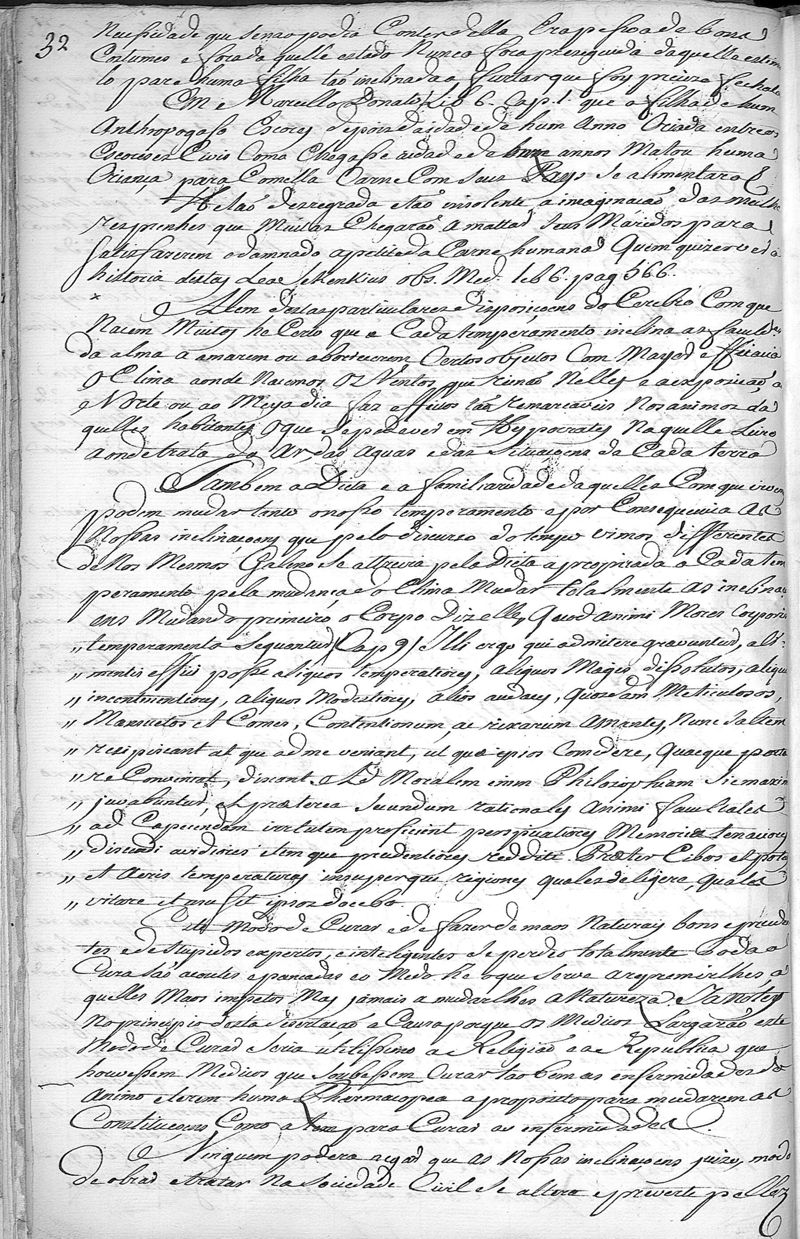 32
Necessidade que se não podia Conter della Era pessoa de bons
Costumes e fora da quelle estado Nunca fora perseguida daquelle estimu
lo pare huma filha tão inclinada a furtar que foy precizo fechala
Em e Marcello Donato lib 6. Cap. 1 que a filha de hum
Anthropogafo Escocez depois da idade de hum Anno Criada entre os
Escocezes Civis Como Chegasse a idade de annos Matou huma
Criança para Com ella Carne Com seus Pays se alimentara
He tão desregrada e tão insolente a imaginação das mulhe
res prenhes que Muitas Chegarão a mattar seus Maridos para
satisfazerem o damnado apetite da Carne humana Quem quizer ver a
historia destas Lea Schenkius obs. Med. lib 6. pag 566.
Alem destas particulares Dispozicoens do Cerebro Com que
Nacem Muitos he Certo que a Cada temperamento inclina as facul.des
da alma a amarem ou aborrecerem Certos objectos Com Mayor efficacia
O Clima aonde Nacemos Os Ventos que reinão Nelles e a expozição a
o Norte ou ao Meyo dia faz effeitos tão remarcaveis Nos animos da
quelles habitantes o que se pode ver em Hyppocrates Na quelle Livro
a onde trata do Ar, das Aguas e das Situaçoens da Cada terra
Tambem a Dieta e a familiaridade da quelles Com que vivem
podem mudar tanto o nosso temperamento e por Consequencia as
Nossas inclinaçoens que pelo discurso do tempo vimos differentes
de Nos Mesmos Galeno se attrevia pela Dieta apropriada a Cada tem
peramento pela mudança do Clima Mudar totalmente as inclina
ens Mudando primeiro o Corpo Diz elle, Quod animi Mores Corporis
,, temperamenta Sequontur (Cap 9) Illi ergo qui admitere gravantur, ali-
,, mentis effici posse aliquos temperatiores, aliquos Mages dissolutos, aliquos
,, incontinentiores, aliquos Modestiores, alios audaces, Quosdam Meticulosos,
,, Mansuetos et Comes, Contentionum, ac rixarum Amantes, Nunc saltem
,, resipiscant at que ad me veniant, ut quæ ipsos Comedere, Quæque pota
,, re Conveniat, discant. Ad Moralem enim Philozophiam sic maxime
,, juvabuntur, et præterea secundum rationales Animi facultates
,, ad Capescendam virtutem proficient perspicatiores Memoria tenaciores
,, discendi avidiores item que prudentiores redditi. Præter Cibos et potus
,, et Aeris temperatures insuper que regiones quales deligere, quales
,, vitare et au sit ipsos docebo.
Modo de Curar e de fazer de maos Naturaes bons e pruden
tes e de Stupidos expertos e inteligentes se perdeo totalmente toda a
Cura são acoutes e pancadas e o Medo he o que serve a reprimir lhes a
quelles Maos impetos Mas jamais a mudar lhes a Natureza. Ja notey
No principio desta Disertação a Causa porque os Medicos Largarão este
Modo de Curar e Seria utilissimo a Religião e a Republica que
houvessem Medicos que Soubessem Curar tão bem as enfermidades do
Animo e terem huma Pharmacopea a proposito para mudarem as
Constituiçoens Como a tem para Curar as enfermidades.
Ninguem podera negar que as Nossas inclinaçoens juizo, modo
de obrar e tratar Na Sociedade Civil se altera e preverte pellas